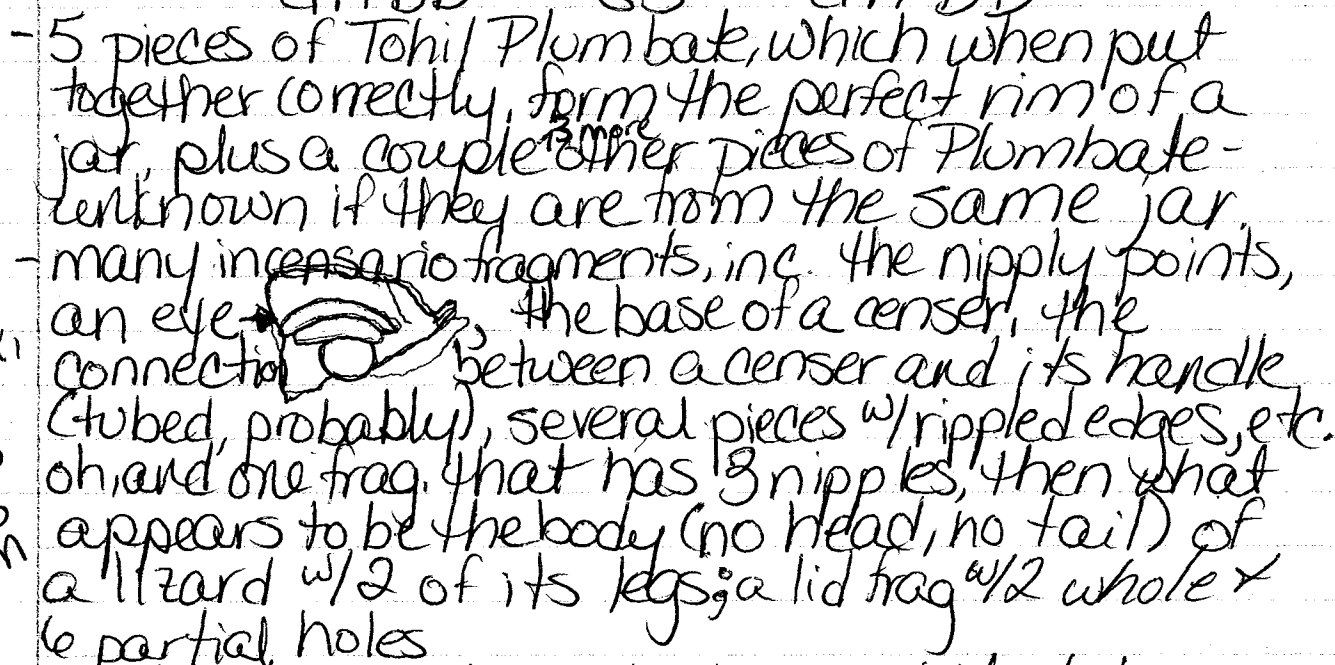 - 5 pieces of Tohil Plumbate, which when put
together correctly, form the perfect rim of a
jar, plus a couple 3 more other pieces of Plumbate -
unknown if they are from the same jar.
- many incensario fragments, inc. the nipply points,
an eye , the base of a censer, the
connection between a censer and its handle
(tubed, probably), several pieces w/ rippled edges, etc.
oh, and one frag. that has 3 nipples, then what
appears to be the body (no head, no tail) of
a lizard w/2 of its legs; a lid frag w/2 whole &
6 partial holes